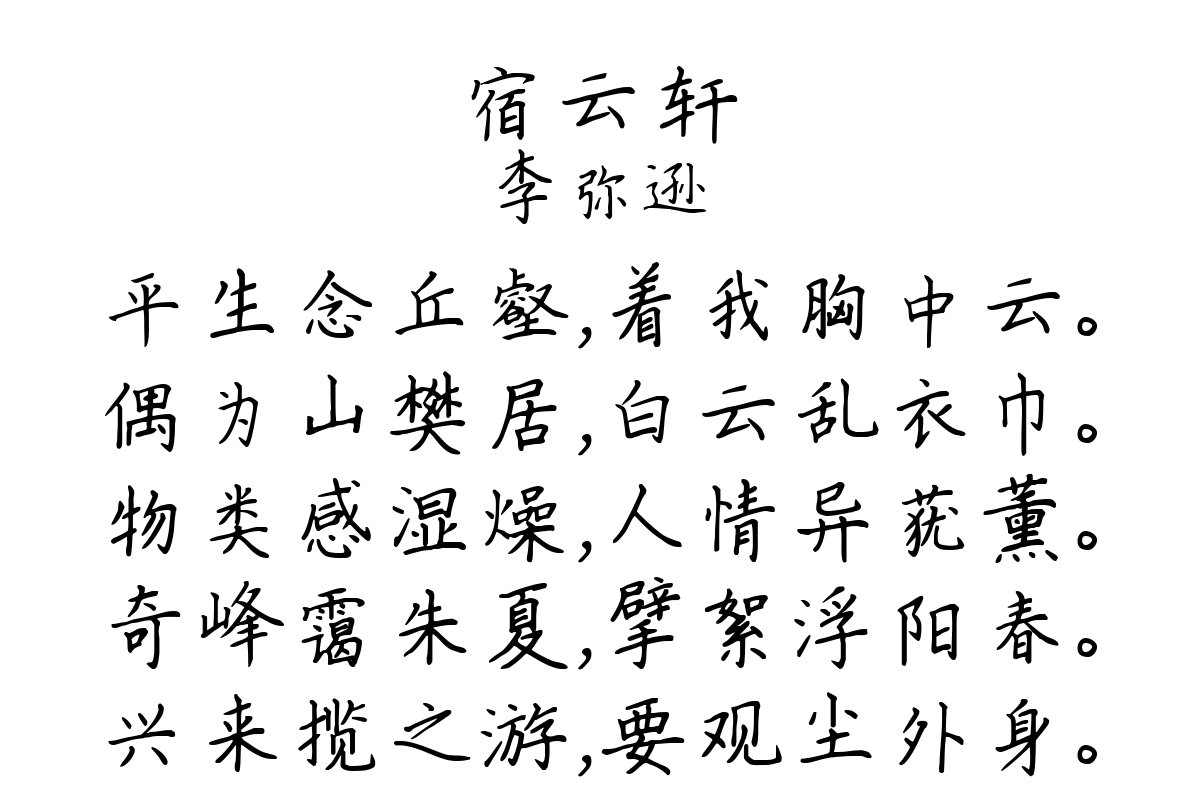 宿云轩
李弥逊
平生念丘壑,着我胸中云。
偶为山樊居,白云乱衣巾。
物类感湿燥,人情异莸薰。
奇峰霭朱夏,擘絮浮阳春。
兴来揽之游,要观尘外身。